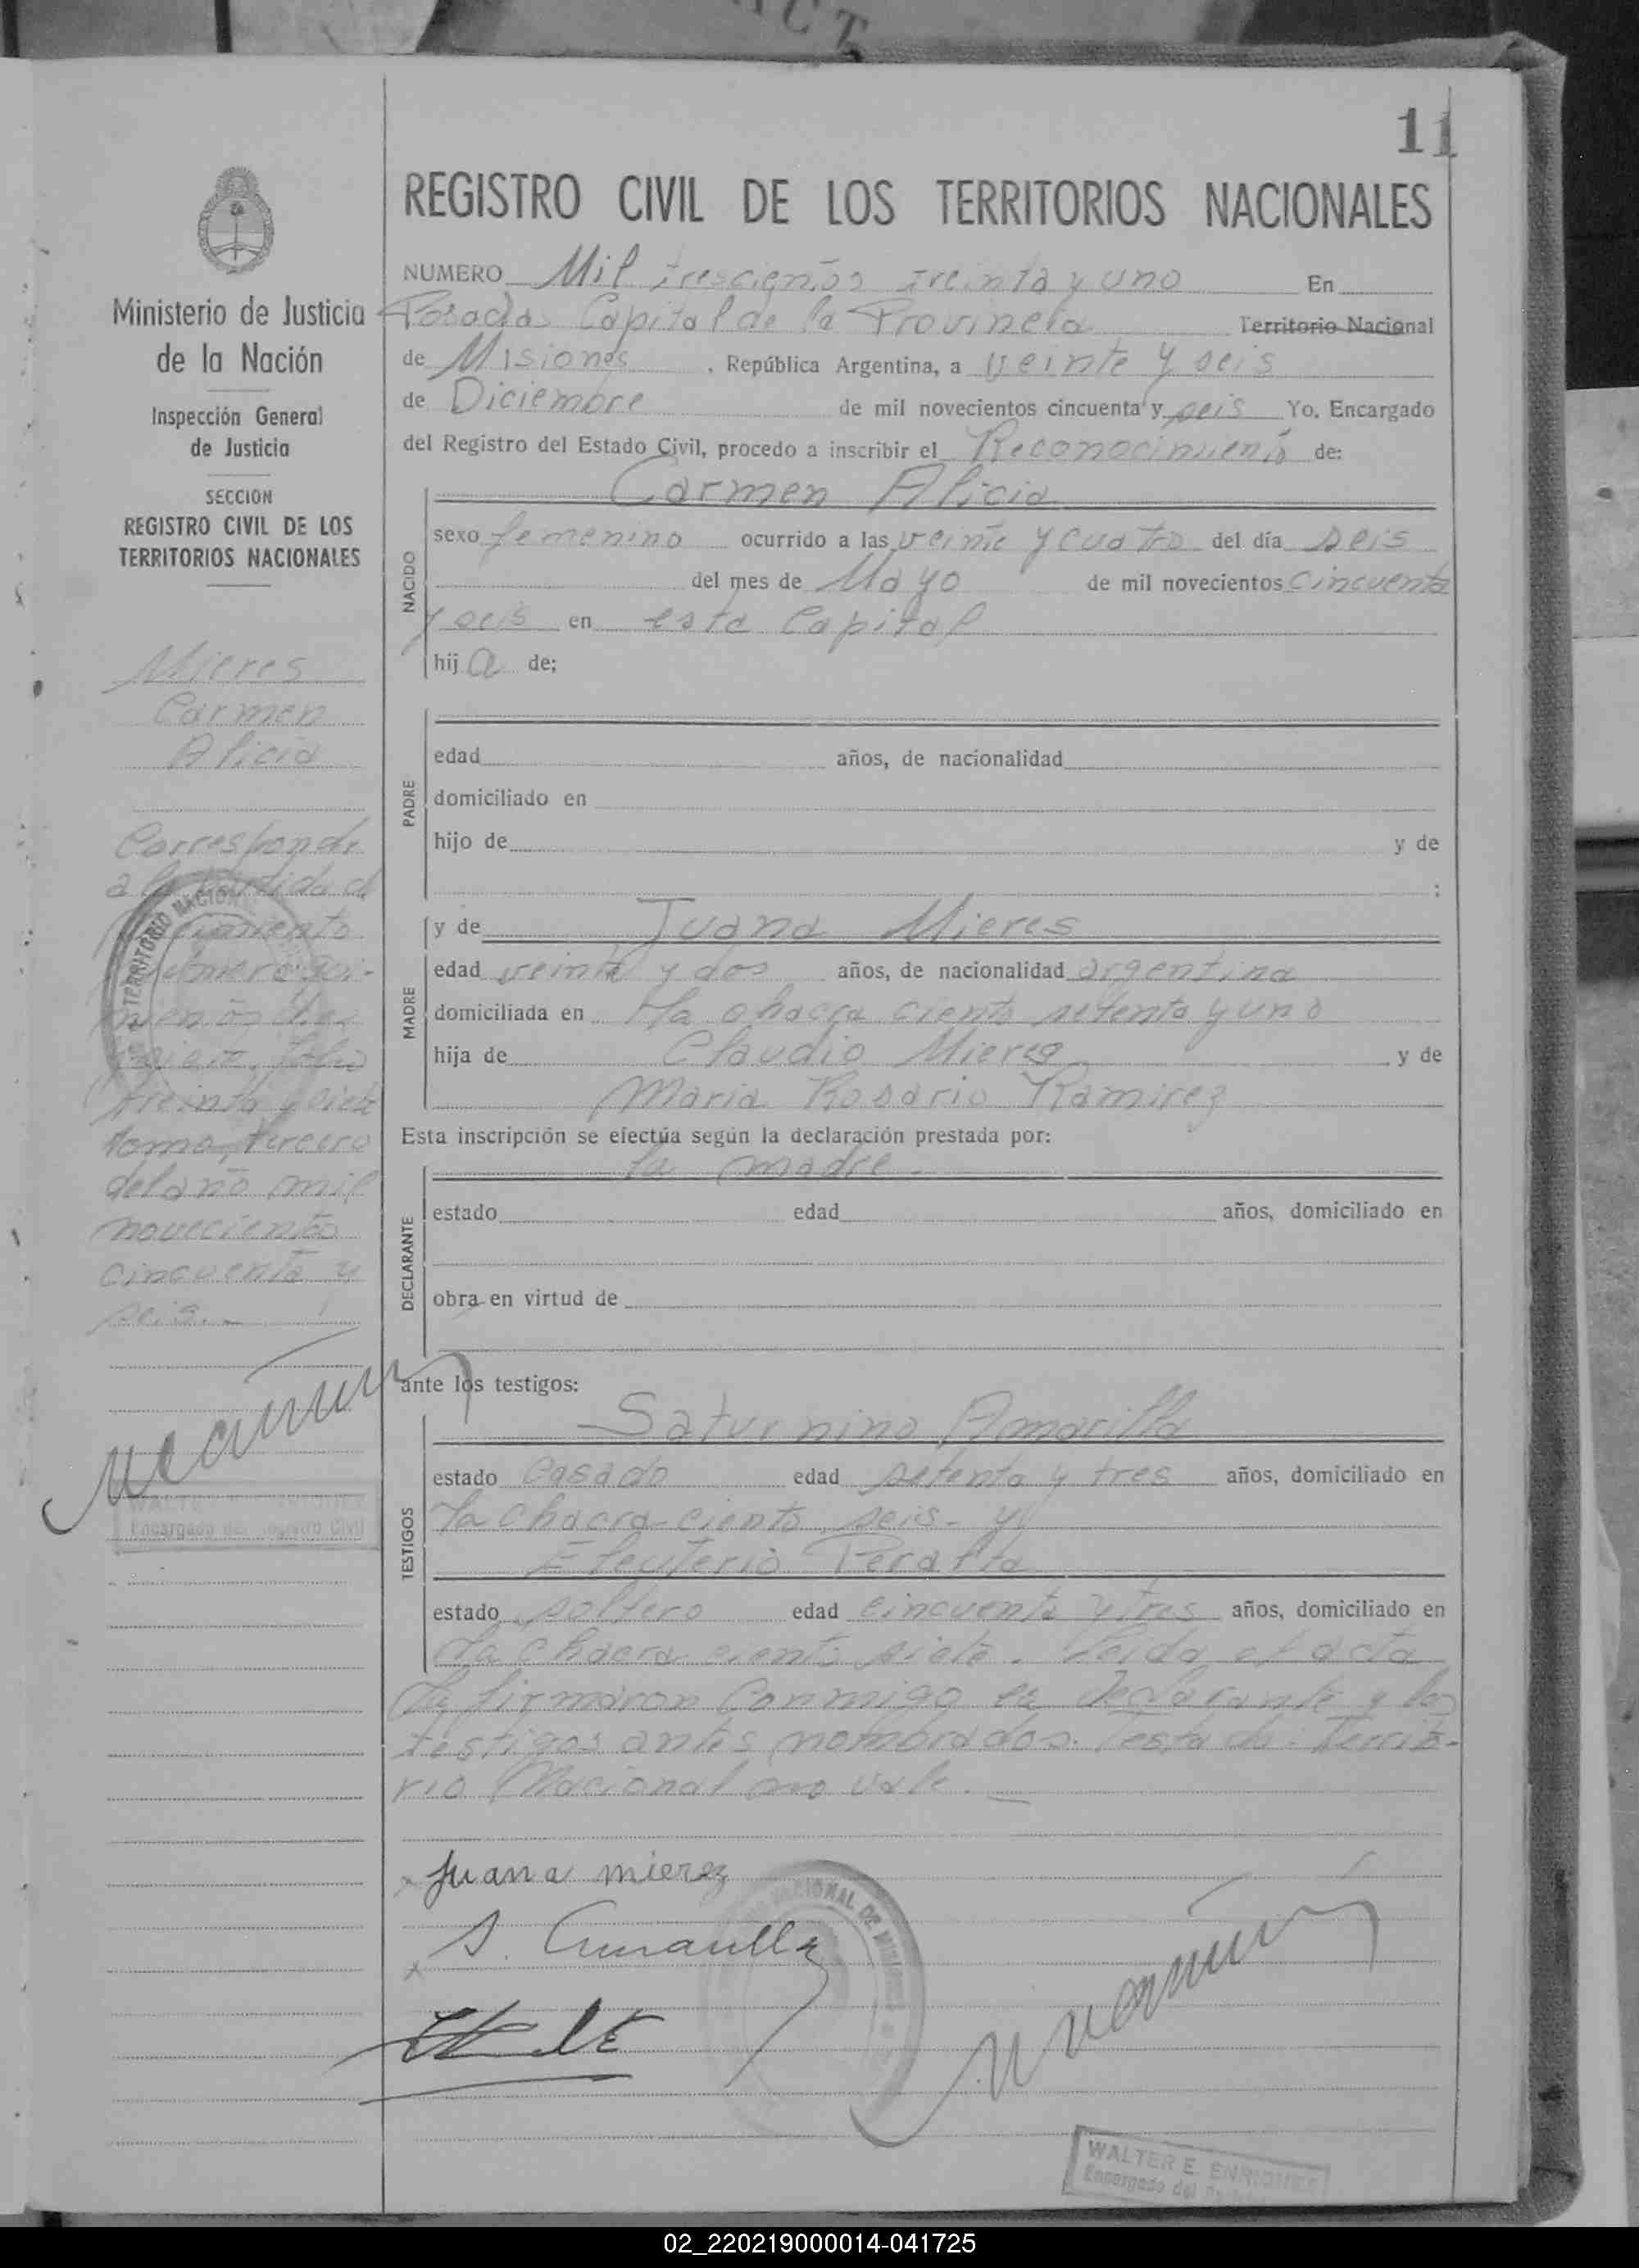 11
Ministerio de Justicia
de la Nación
Inspección General
de Justicia
SECCION
REGISTRO CIVIL DE LOS
TERRITORIOS NACIONALES
Mieres
Carmen
Alicia
Corresponde
a la partida d
numero qui-
nientos
folio
treinta y siete
tomo, tercero
del año mil
novecientos
cincuenta y
seis.-
Encargado del Registro Civil
REGISTRO CIVIL DE LOS TERRITORIOS NACIONALES
NUMERO Mil trescientos treinta y uno En
Posadas Capital de la Provincia Territorio Nacional
de Misiones, República Argentina, a veinte y seis
de Diciembre de mil novecientos cincuenta y seis Yo, Encargado
del Registro del Estado Civil, procedo a inscribir el Reconocimiento de:
Carmen Alicia
NACIDO
sexo femenino ocurrido a las veinte y cuatro del día seis
del mes de Mayo de mil novecientos cincuenta
y seis en esta Capital
hij a de;
PADRE
edad años, de nacionalidad
domiciliado en
hijo de y de
;
MADRE
y de Juana Mieres
edad veinte y dos años, de nacionalidad argentina
domiciliada en la chacra ciento setenta y uno
hija de Claudio Mieres y de
Maria Rosario Ramirez
Esta inscripción se efectúa según la declaración prestada por:
la madre.
DECLARANTE
estado edad años, domiciliado en
obra en virtud de
ante los testigos:
TESTIGOS
Saturnino Amarilla
estado casado edad setenta y tres años, domiciliado en
la chacra ciento seis- y
Eleuterio Peralta
estado soltero edad cincuenta y tres años, domiciliado en
la chacra ciento siete. Leida el acta
la firmaron conmigo la declarante y los
testigos antes nombrados. Testado: Territo-
rio Nacional no vale.-
x Juana mierez
x S. Amarilla
NACIONAL DE MISIONES
WALTER E. ENRIQUEZ
Encargado del
02_220219000014-041725